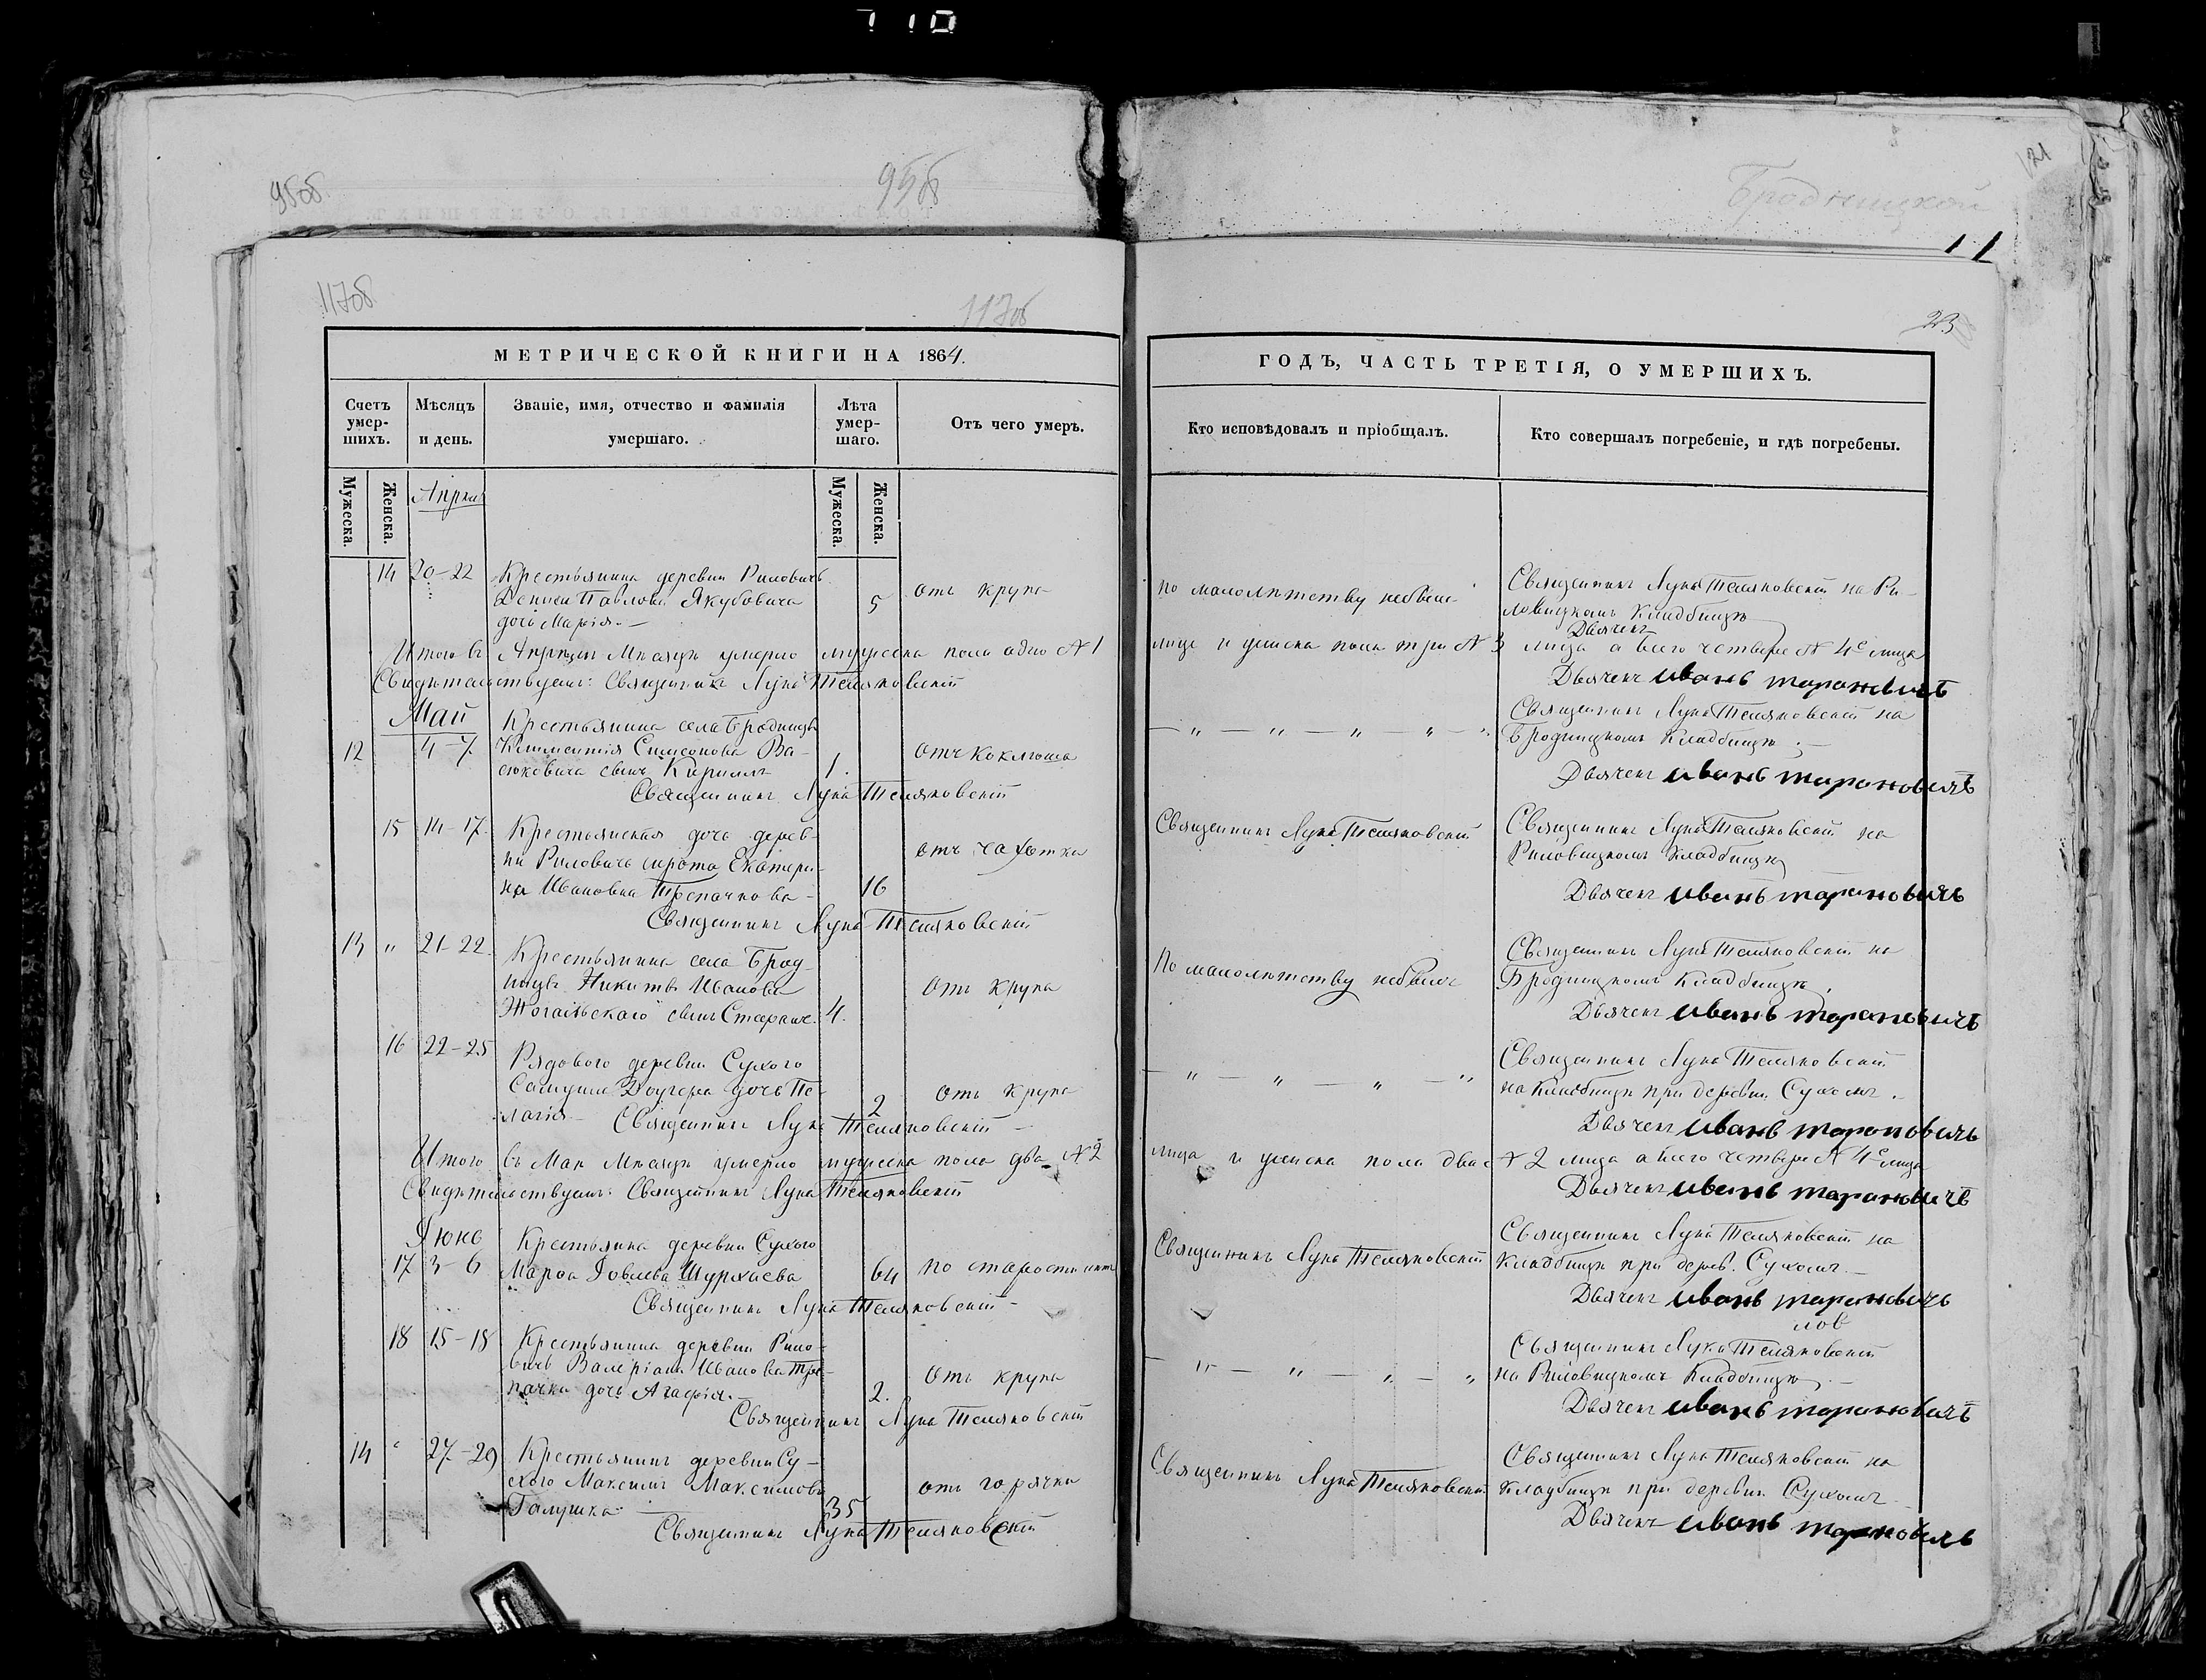 710
950б.
95б
Бродницкой
121
11
117об
117об
23
МЕТРИЧЕСКОЙ КНИГИ НА 1864.
ГОДЪ, ЧАСТЬ ТРЕТІЯ, О УМЕРШИХЪ.
Счетъ умер-шихъ.
Мѣсяцъ и день.
Званіе, имя, отчество и фамилія умершаго.
Лѣта умер-шаго.
Отъ чего умеръ.
Кто исповѣдовалъ и пріобщалъ.
Кто совершалъ погребеніе, и гдѣ погребены.
Мужеска.
Женска.
Мужеска.
Женска.
Апрѣль
14 20-22 Крестьянина деревни Риловичъ
Павлова Якубовича
дочь Марія.
5
отъ крупа
по малолѣтству небыла
Священникъ Лука Теляковскій на Ри-
ловицкомъ Кладбищѣ
Дьячекъ
Итого въ Апрѣлѣ Мѣсяцѣ умерло мужеска пола одно № 1
лице и женска пола три № 3 лица а всего четыре № 4е лица
Свидѣтельствуемъ: Священникъ Лука Теляковскій
Дьячекъ Иванъ Тарановичъ
Май
12 4-7. Крестьянина села Бродницы
Климентія Симеонова Ва-
сюковича сынъ Кириллъ
1.
отъ коклюша
Священникъ Лука Теляковскій на
Бродницкомъ Кладбищѣ
Священникъ Лука Теляковскій
Дьячекъ Иванъ Тарановичъ
15 14-17. Крестьянская дочь дерев-
ни Риловичъ сирота Екатери-
на Ивановна Трепачкова
16
отъ чахотки
Священникъ Лука Теляковскій
Священникъ Лука Теляковскій на
Риловицкомъ Кладбищѣ
Дьячекъ Иванъ Тарановичъ
Священникъ Лука Теляковскій
13 " 21-22. Крестьянина села Брод-
ницъ Никиты Иванова
Жогальскаго сынъ Стефанъ.
4.
отъ крупа
По малолѣтству небылъ
Священникъ Лука Теляковскій на
Бродницкомъ Кладбищѣ.
Дьячекъ Иванъ Тарановичъ
16 22-25 Рядового деревни Сухого
дочь Пе-
лагія
2
отъ крупа
Священникъ Лука Теляковскій
Священникъ Лука Теляковскій
на Кладбищѣ при деревни Сухомъ.
Дьячекъ Иванъ Тарановичъ
Итого въ Маи Мѣсяцѣ умерло мужеска пола два № 2
лица и женска пола двѣ № 2 лица а всего четыре № 4е лица
Свидѣтельствуемъ: Священникъ Лука Теляковскій
Дьячекъ Иванъ Тарановичъ
Іюнь
17 3-6 Крестьянка деревни Сухого
Марѳа Іовлева
64
по старости лѣтъ
Священникъ Лука Теляковскій
Священникъ Лука Теляковскій на
Кладбищѣ при дерев. Сухомъ.
Священникъ Лука Теляковскій
Дьячекъ Иванъ Тарановичъ
лов
18 15-18 Крестьянина деревни Рило-
вичъ Валеріана Иванова Тре-
пачки дочь Агафія.
2.
отъ крупа
Священникъ Лука Теляковскій
на Риловицкомъ Кладбищѣ.
Священникъ Лука Теляковскій
Дьячекъ Иванъ Тарановичъ
14 27-29 Крестьянинъ деревни Су-
хого Максимъ Максимовъ
Галушка
35
отъ горячки
Священникъ Лука Теляковскій
Священникъ Лука Теляковскій на
кладбищѣ при деревни Сухомъ
Священникъ Лука Теляковскій
Дьячекъ Иванъ Тарановичъ